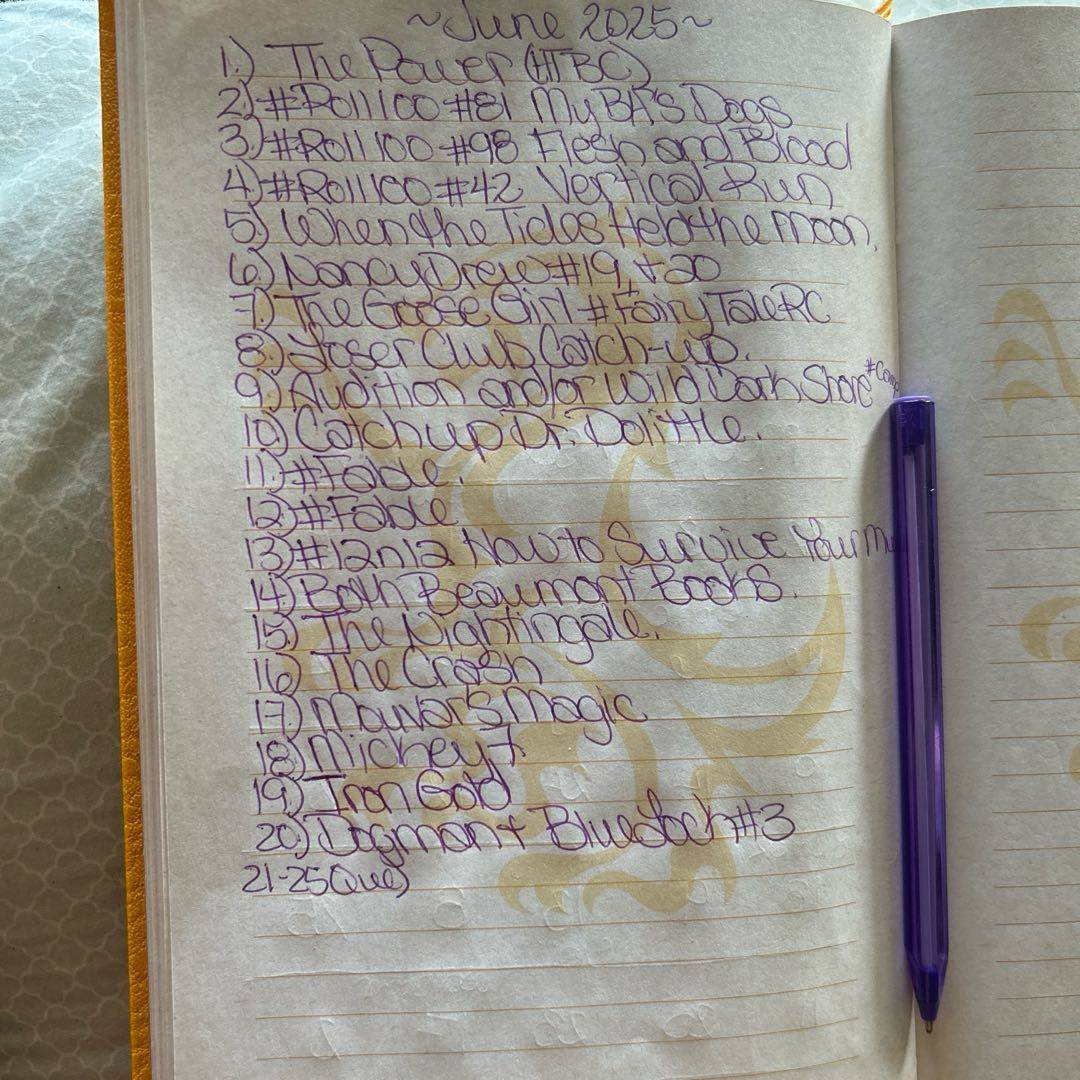 ~June 2025~
1.) The Power (HTBC)
2.) #Roll100 #81 My BF's Dogs
3.) #Roll100 #98 Flesh and Blood
4.) #Roll100 #42 Vertical Run
5.) When the Tides Held the Moon.
6.) Nancy Drew #19 + 20
7.) The Goose Girl #FairyTaleRC
8.) Loser Club Catch-up.
9.) Audition and/or Wild Dark Shore #Camp
10.) Catch up Dr. Dolittle.
11.) #Fable.
12.) #Fable
13.) #12n12 How to Survive Your
14.) Both Beaumont Books.
15.) The Nightingale.
16.) The Crash
17.) Magic
18.) Mickey7
19.) Iron Gold
20.) Dogman + Bluelock #3
21-25 (Que)